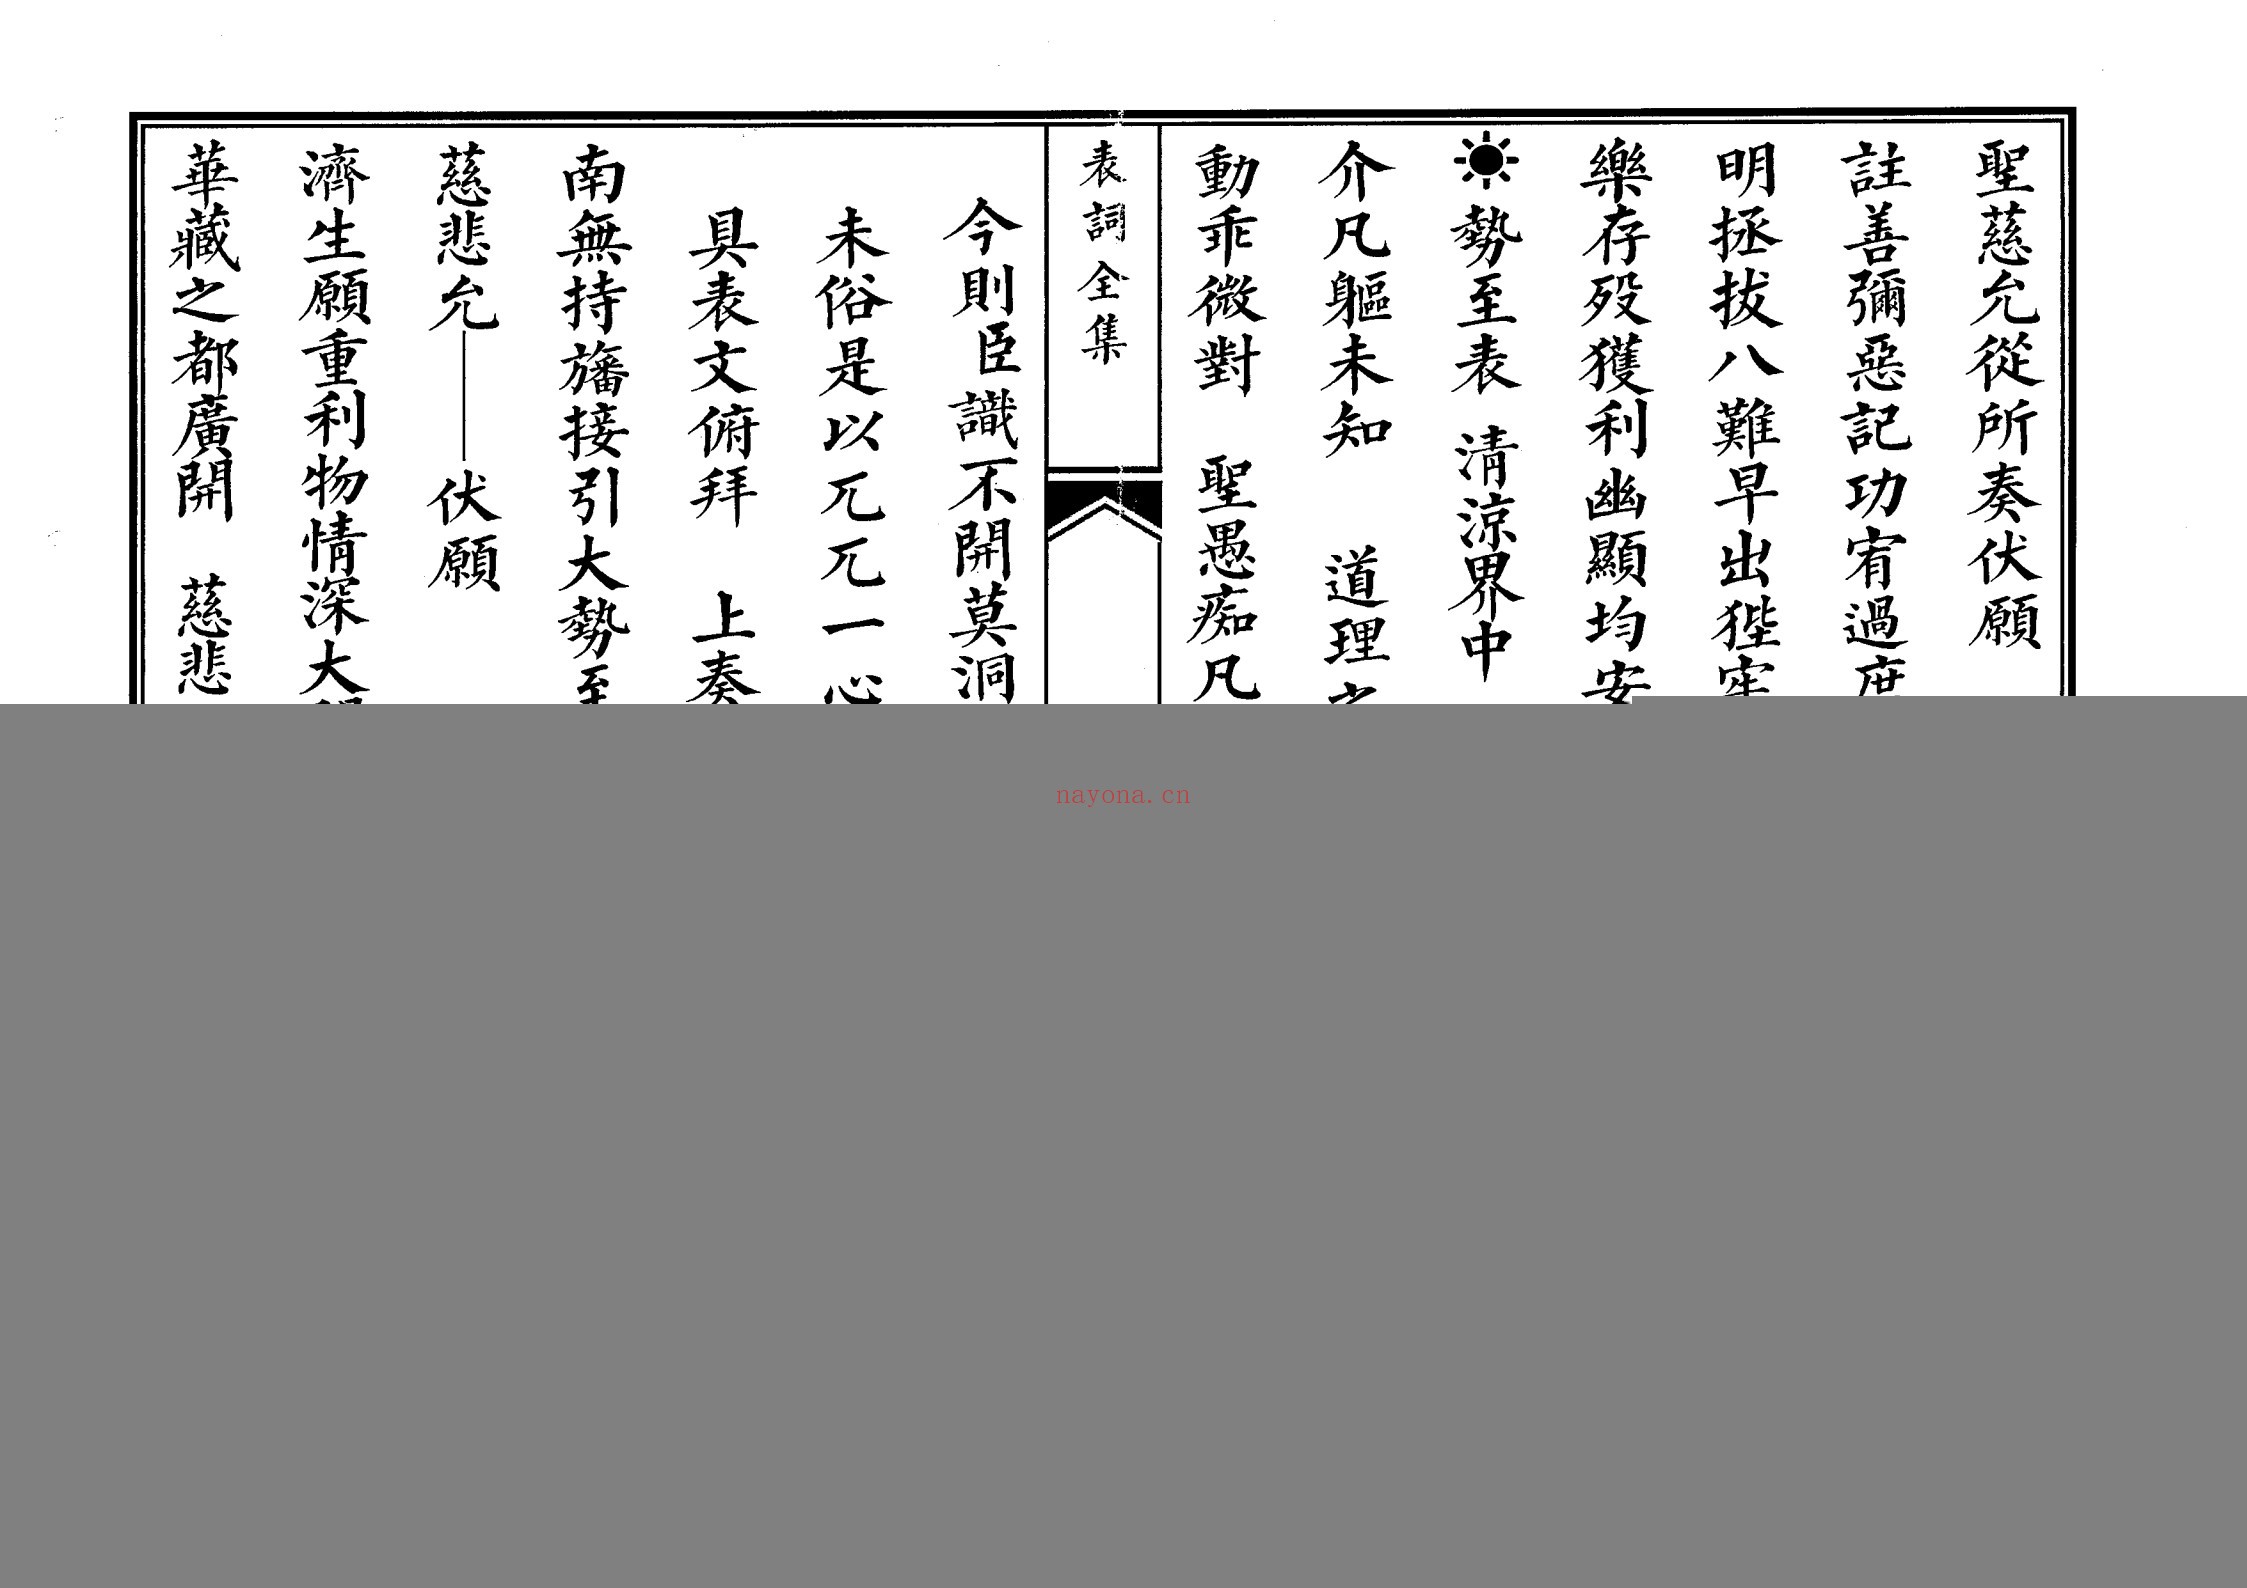 聖慈允從所奏伏願
註善彌惡記功宥過庶
明拯拔八難早出狴牢
樂存歿獲利幽顯均安
勢至表 清涼界中
介凡軀未知 道理之
動乖微對 聖愚痴凡
表詞全集
今則臣識不開莫洞
未俗是以兀兀一心
具表文俯拜 上奏
南無持旛接引大勢至
慈悲允——伏願
濟生願重利物情深大
華藏之都廣開 慈悲
nayona.cn